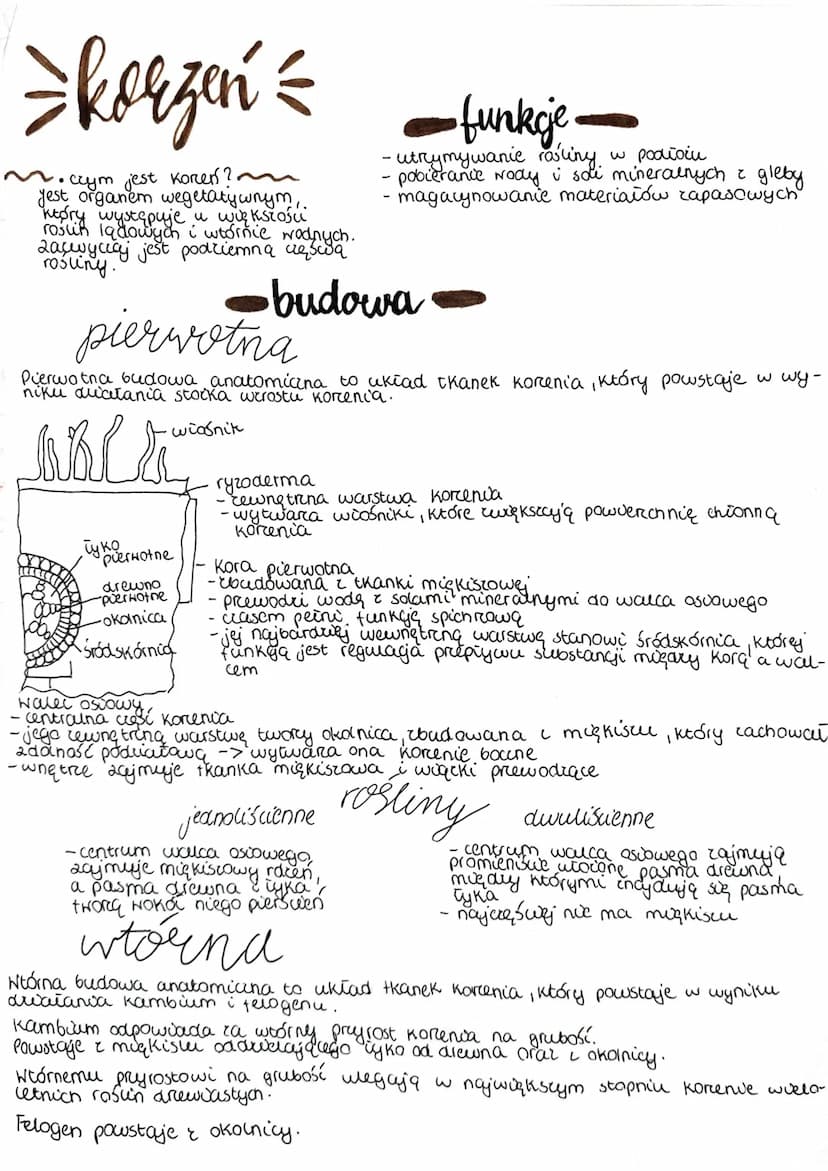 korzeń
funkcje
- utrzymywanie rośliny w podłożu
- pobieranie wody i soli mineralnych z gleby
- magazynowanie materiałów zapasowych
• czym jest korzeń?
Jest organem wegetatywnym,
który występuje u większości
roślin lądowych i wtórnie wodnych.
Zazwyczaj jest podziemną częścią
rośliny.
budowa
pierwotna
Pierwotna budowa anatomiczna to układ tkanek korzenia, który powstaje w wy-
niku działania stożka wzrostu korzenia.
włośnik
ryzoderma
- zewnętrzna warstwa korzenia
- wytwarza włośniki, które zwiększają powierzchnię chłonną
korzenia
łyko
pierwotne
drewno
pierwotne
okolnica
śródskórnia
kora pierwotna
- zbudowana z tkanki miękiszowej
- przewodzi wodę z solami mineralnymi do walca osiowego
- czasem pełni funkcję spichrzową
- jej najbardziej wewnętrzną warstwę stanowi śródskórnia, której
funkcją jest regulacja przepływu substancji między korą a wal-
cem
walec osiowy
- centralna część korzenia
- jego zewnętrzną warstwę tworzy okolnica, zbudowana z miękiszu, który zachował
zdolność podziałową -> wytwarza ona korzenie boczne
- wnętrze zajmuje tkanka miękiszowa i wiązki przewodzące
rośliny
jednoliścienne
- centrum walca osiowego
zajmuje miękiszowy rdzeń,
a pasma drewna i łyka
tworzą wokół niego pierścień
dwuliścienne
- centrum walca osiowego zajmują
promieniście ułożone pasma drewna,
między którymi znajdują się pasma
łyka
- najczęściej nie ma miękiszu
wtórna
Wtórna budowa anatomiczna to układ tkanek korzenia, który powstaje w wyniku
działania kambium i felogenu.
Kambium odpowiada za wtórny przyrost korzenia na grubość.
Powstaje z miękiszu oddzielającego łyko od drewna oraz z okolnicy.
Wtórnemu przyrostowi na grubość ulegają w największym stopniu korzenie wielo-
letnich roślin drzewiastych.
Felogen powstaje z okolnicy.